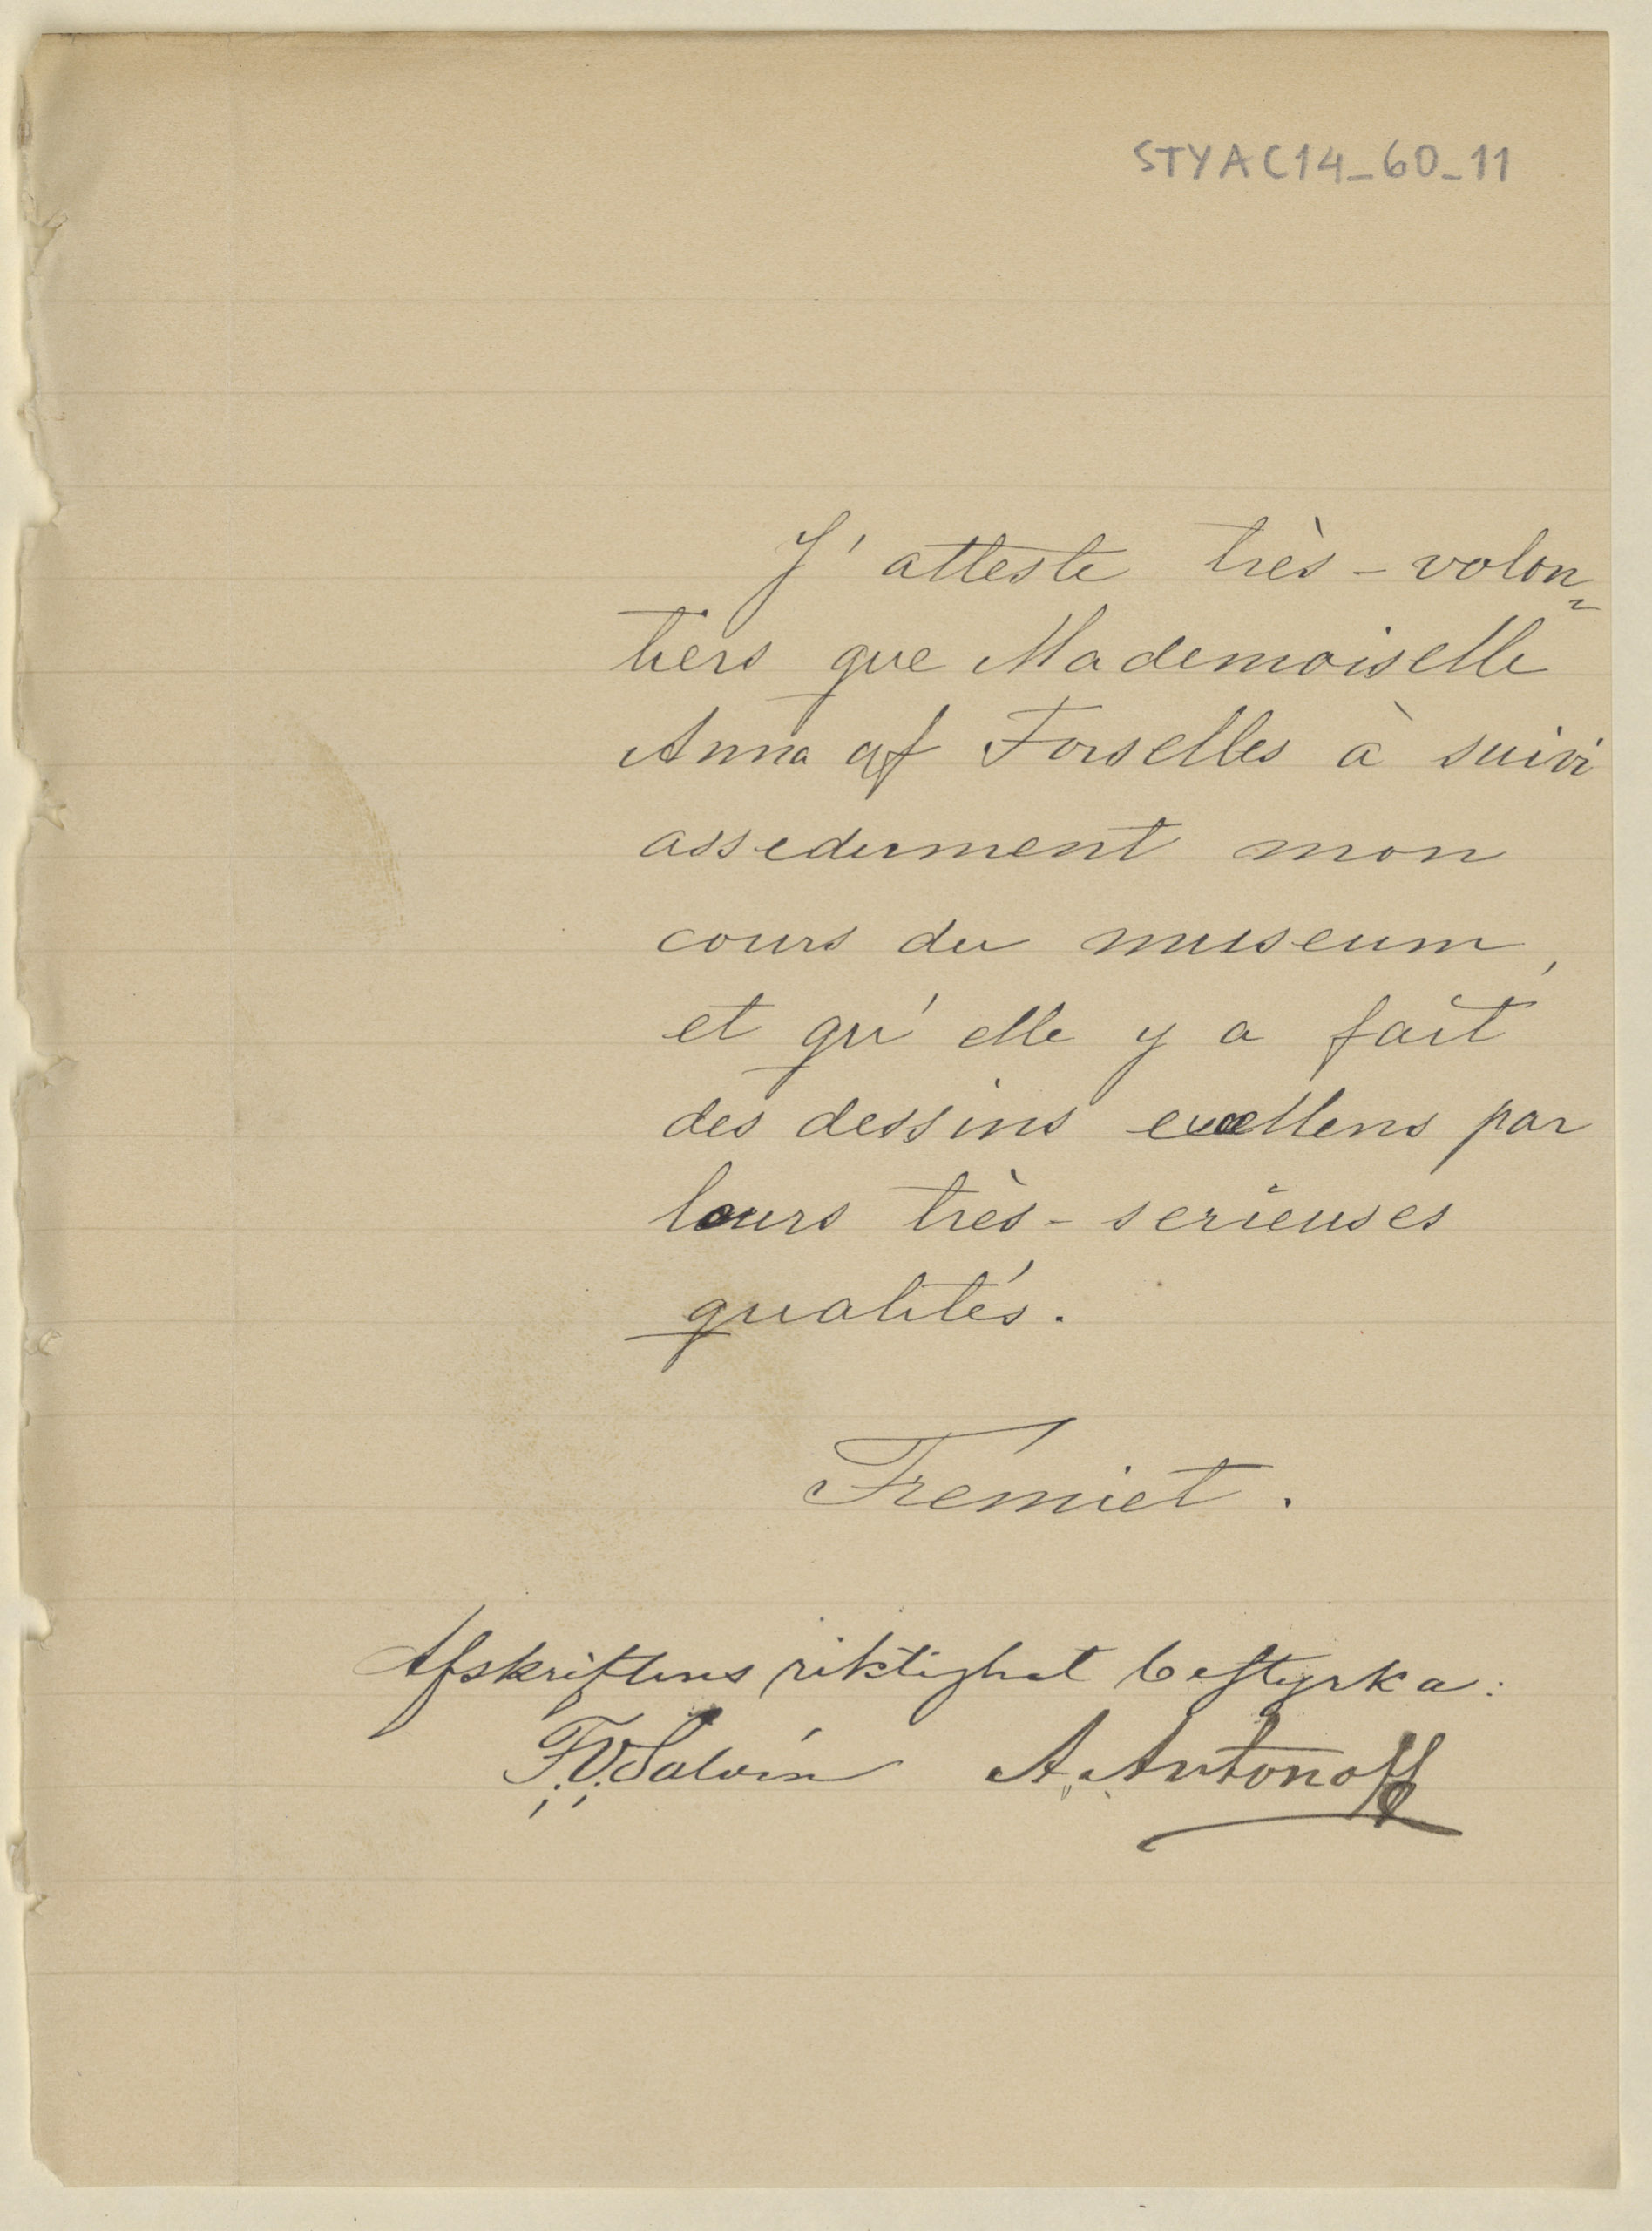 STYAC14_60_11
J'atteste très-volon=
tiers que Mademoiselle
Anna af Forselles à suivi
assedument mon
cours du museum,
et qu'elle y a fait
des dessins excellens par
leurs très-serieuses
qualités.
Fremiet.
Afskriftens riktighet bestyrka:
F.V. Salvén A. Antonoff